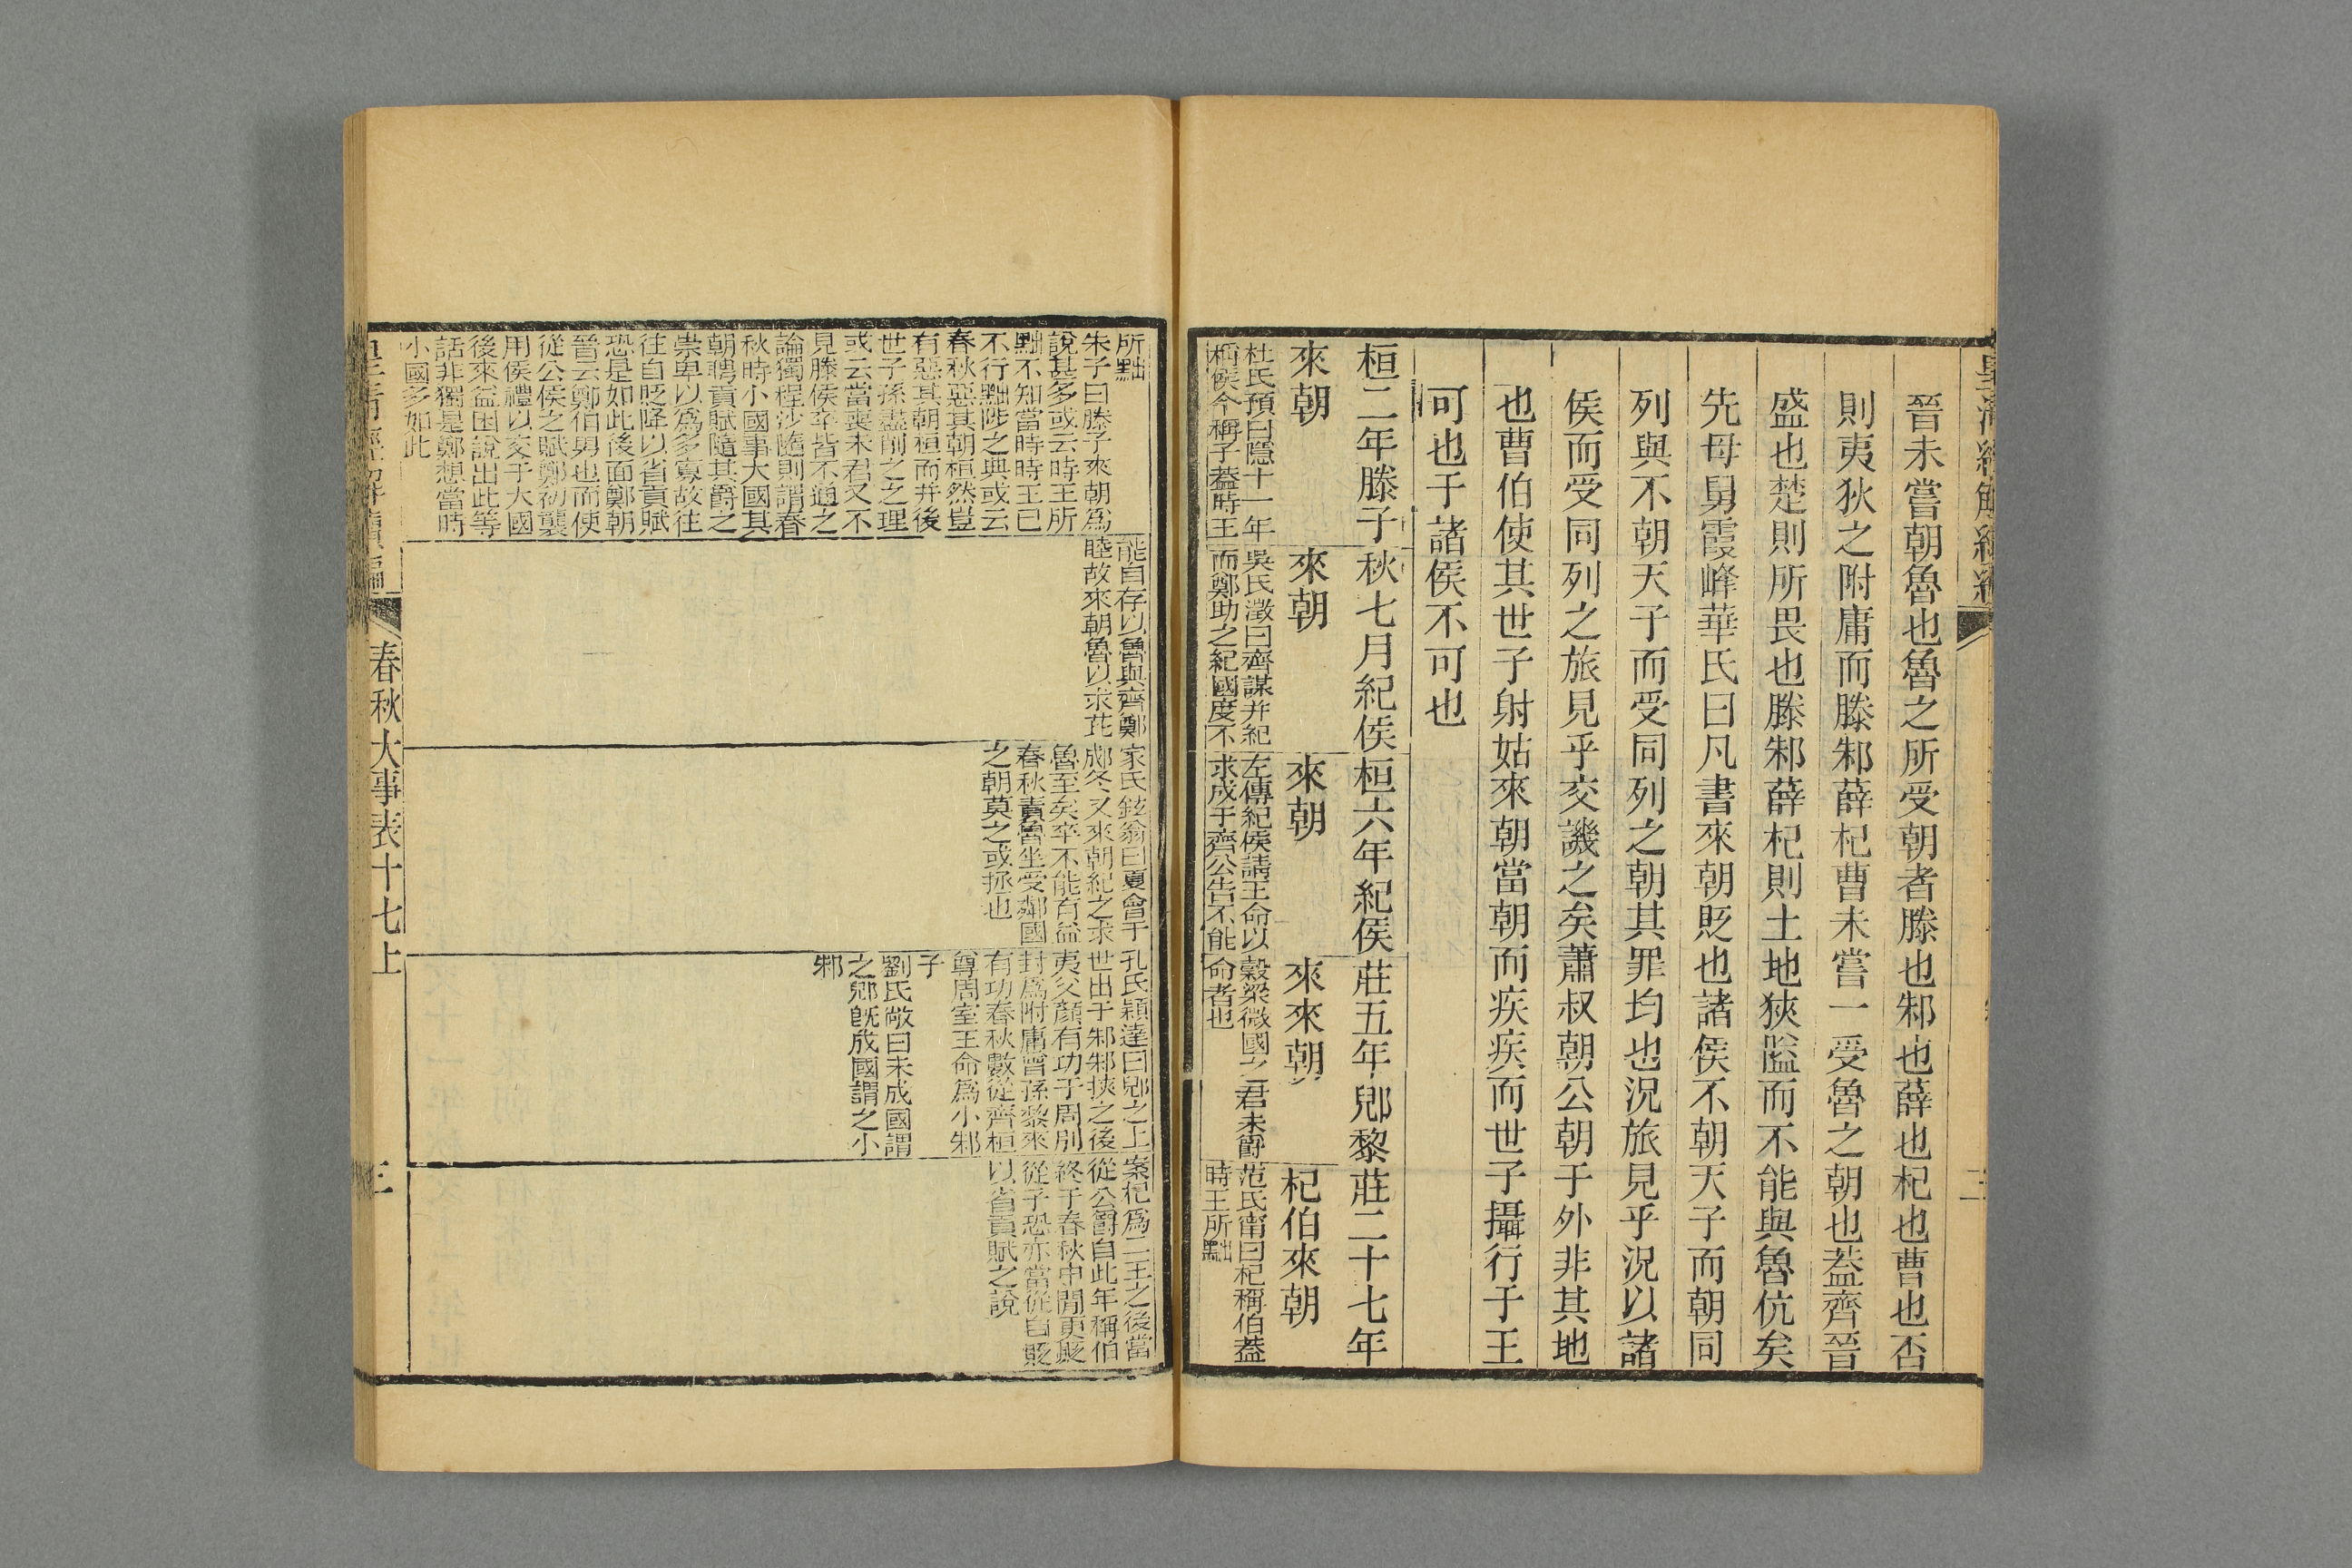 皇清經解續編
晉未嘗朝魯也魯之所受朝者滕也邾也薛也杞也曹也否
則夷狄之附庸而滕邾薛杞曹未嘗一受魯之朝也蓋齊晉
盛也楚則所畏也滕邾薛杞則土地狹隘而不能與魯伉矣
先母舅霞峰華氏曰凡書來朝貶也諸侯不朝天子而朝同
列與不朝天子而受同列之朝其罪均也況旅見乎況以諸
侯而受同列之旅見乎交譏之矣蕭叔朝公朝于外非其地
也曹伯使其世子射姑來朝當朝而疾疾而世子攝行于王
可也于諸侯不可也
桓二年滕子
來朝
杜氏預曰隱十一年
稱侯今稱子蓋時王
秋七月紀侯
來朝
吳氏澂曰齊謀并紀
而鄭助之紀國度不
桓六年紀侯
來朝
左傳紀侯請王命以
求成于齊公告不能
莊五年郳黎
來來朝
穀梁微國之君未爵
命者也
莊二十七年
杞伯來朝
范氏甯曰杞稱伯蓋
時王所黜
所黜
朱子曰滕子來朝為
說甚多或云時王所
黜不知當時時王已
不行黜陟之典或云
春秋惡其朝桓然豈
有惡其朝桓而并後
世子孫盡削之之理
或云當喪未君又不
見滕侯卒皆不通之
論獨程沙隨則謂春
秋時小國事大國其
朝聘貢賦隨其爵之
崇卑以為多寡故往
往自貶降以省貢賦
恐是如此後面鄭朝
晉云鄭伯男也而使
從公侯之賦鄭初襲
用侯禮以交于大國
後來益困說出此等
話非獨是鄭想當時
小國多如此
能自存以魯與齊鄭
睦故來朝魯以求芘
家氏鉉翁曰夏會于
郕冬又來朝紀之求
魯至矣卒不能有益
春秋責魯坐受鄰國
之朝莫之或拯也
孔氏穎達曰郳之上
世出于邾邾挾之後
夷父顏有功于周別
封為附庸曾孫黎來
有功春秋數從齊桓
尊周室王命為小邾
子
劉氏敞曰未成國謂
之郳既成國謂之小
邾
案杞為二王之後當
從公爵自此年稱伯
終于春秋中閒更貶
從子恐亦當從自貶
以省貢賦之說
皇清經解續編
春秋大事表十七上
三